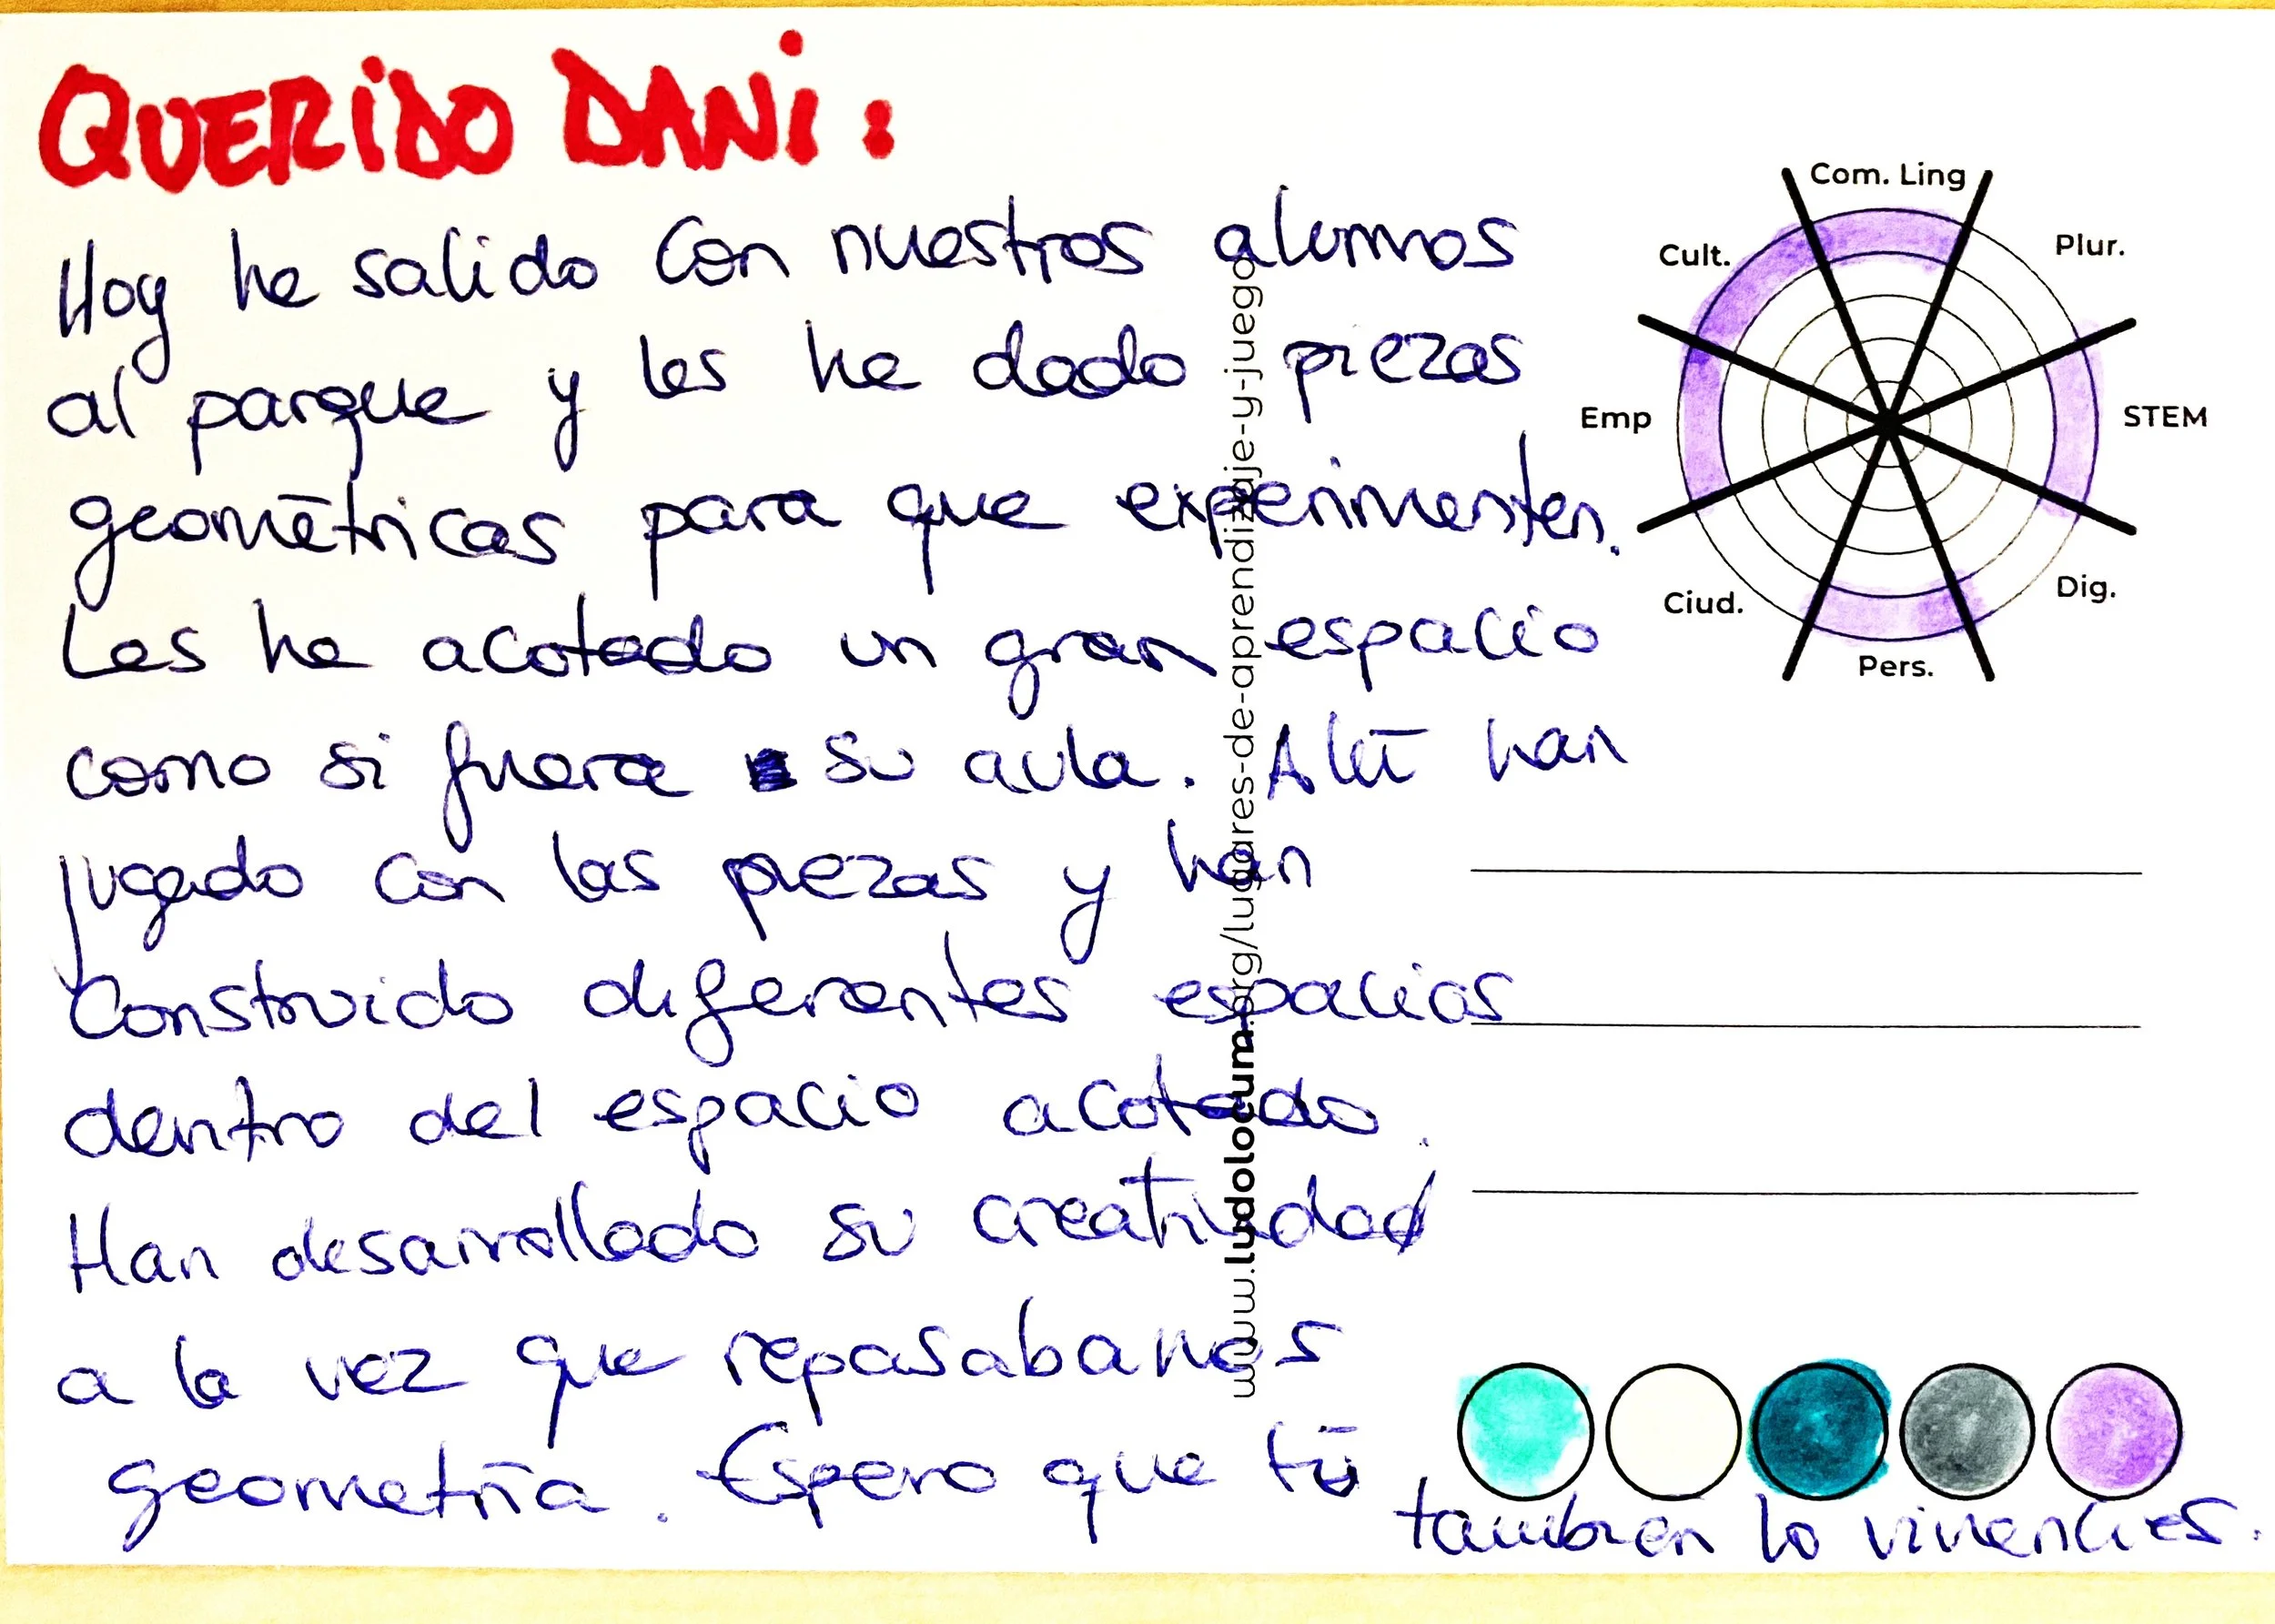 QUERIDO DANI:
Hoy he salido con nuestros alumnos
al parque y les he dado piezas
geométricas para que experimenten.
Les he acotado un gran espacio
como si fuera su aula. Allí han
jugado con las piezas y han
construido diferentes espacios
dentro del espacio acotado.
Han desarrollado su creatividad
a la vez que repasabamos
geometría. Espero que tú
tambien lo vivencies.
www.ludolocum.org/lugares-de-aprendizaje-y-juego
Com. Ling
Plur.
STEM
Dig.
Pers.
Ciud.
Emp
Cult.